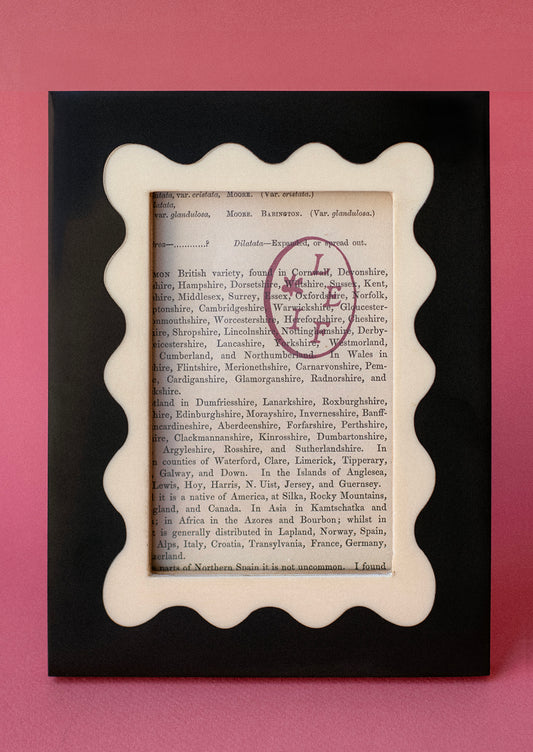 latata, var. cristata, Moore. (Var. cristata.)
latata,
var. glandulosa, Moore. Babington. (Var. glandulosa.)
rea—............? Dilatata—Expanded, or spread out.
MON British variety, found in Cornwall, Devonshire,
shire, Hampshire, Dorsetshire, Wiltshire, Sussex, Kent,
shire, Middlesex, Surrey, Essex, Oxfordshire, Norfolk,
ptonshire, Cambridgeshire, Warwickshire, Gloucester-
onmouthshire, Worcestershire, Herefordshire, Cheshire,
ire, Shropshire, Lincolnshire, Nottinghamshire, Derby-
eicestershire, Lancashire, Yorkshire, Westmorland,
Cumberland, and Northumberland. In Wales in
hire, Flintshire, Merionethshire, Carnarvonshire, Pem-
e, Cardiganshire, Glamorganshire, Radnorshire, and
kshire.
tland in Dumfriesshire, Lanarkshire, Roxburghshire,
hire, Edinburghshire, Morayshire, Invernesshire, Banff-
ncardineshire, Aberdeenshire, Forfarshire, Perthshire,
ire, Clackmannanshire, Kinrosshire, Dumbartonshire,
Argyleshire, Rosshire, and Sutherlandshire. In
n counties of Waterford, Clare, Limerick, Tipperary,
Galway, and Down. In the Islands of Anglesea,
Lewis, Hoy, Harris, N. Uist, Jersey, and Guernsey.
l it is a native of America, at Silka, Rocky Mountains,
gland, and Canada. In Asia in Kamtschatka and
; in Africa in the Azores and Bourbon; whilst in
t is generally distributed in Lapland, Norway, Spain,
Alps, Italy, Croatia, Transylvania, France, Germany,
zerland.
parts of Northern Spain it is not uncommon. I found
L
E
I F